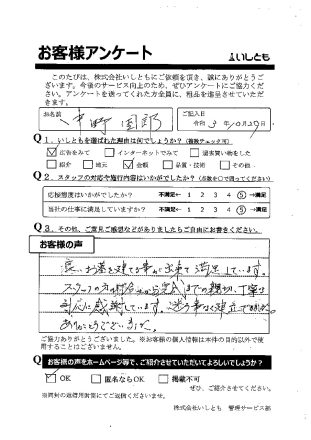 お客様アンケート
いしとも
このたびは、株式会社いしともにご依頼を頂き、誠にありがとうございます。今後のサービス向上のため、ぜひアンケートにご協力ください。アンケートを送ってくれた方全員に、粗品を進呈させていただきます。
お名前
ご記入日
令和 3年 10月29日
Q1. いしともを選ばれた理由は何でしょうか？（複数チェック可）
広告をみて インターネットでみて 過去買い物をした
紹介 地元 金額 品質・技術 その他
Q2. スタッフの対応や施行内容はいかがでしたか？（点数を○で囲ってください）
応接態度はいかがでしたか？ 不満足← 1 2 3 4 5 →満足
当社の仕事に満足していますか？ 不満足← 1 2 3 4 5 →満足
Q3. その他、ご意見ご感想などがありましたらご自由にお書きください。
お客様の声
お墓を建てる事が出来て満足しています。
スタッフの方の までの親切、丁寧な
対応に感謝しています。
ありがとうございました。
ご協力ありがとうございました。※お客様の個人情報は本件の目的以外で使用することはございません。
Q お客様の声をホームページ等で、ご紹介させていただいてよろしいでしょうか？
OK 匿名ならOK 掲載不可
ぜひ、ご紹介させてください。
※同封の返信用封筒にてご返信くださいませ。
株式会社いしとも 管理サービス部